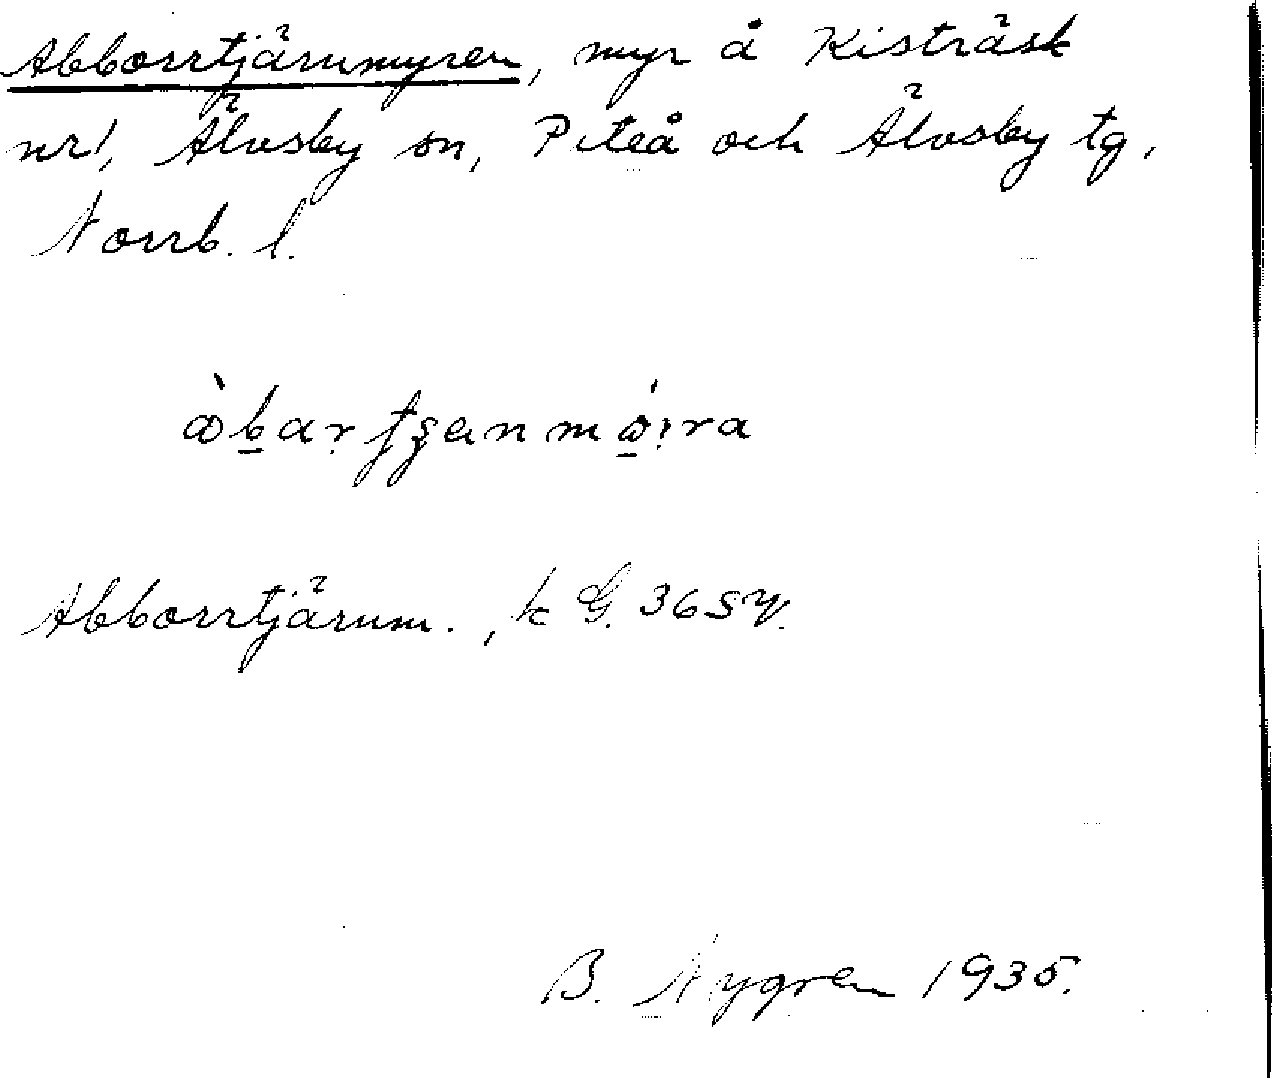 Abborrtjärnmyren, myr å Kisträsk
nr 1, Älvsby sn, Piteå och Älvsby tg,
Norrb. l.
Abborrtjärnm., k G. 365 y.
B. Nygren 1935.